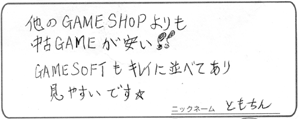 他のGAMESHOPよりも
中古GAMEが安い!!
GAMESOFTもキレイに並べてあり
見やすいです☆
ニックネーム ともちん